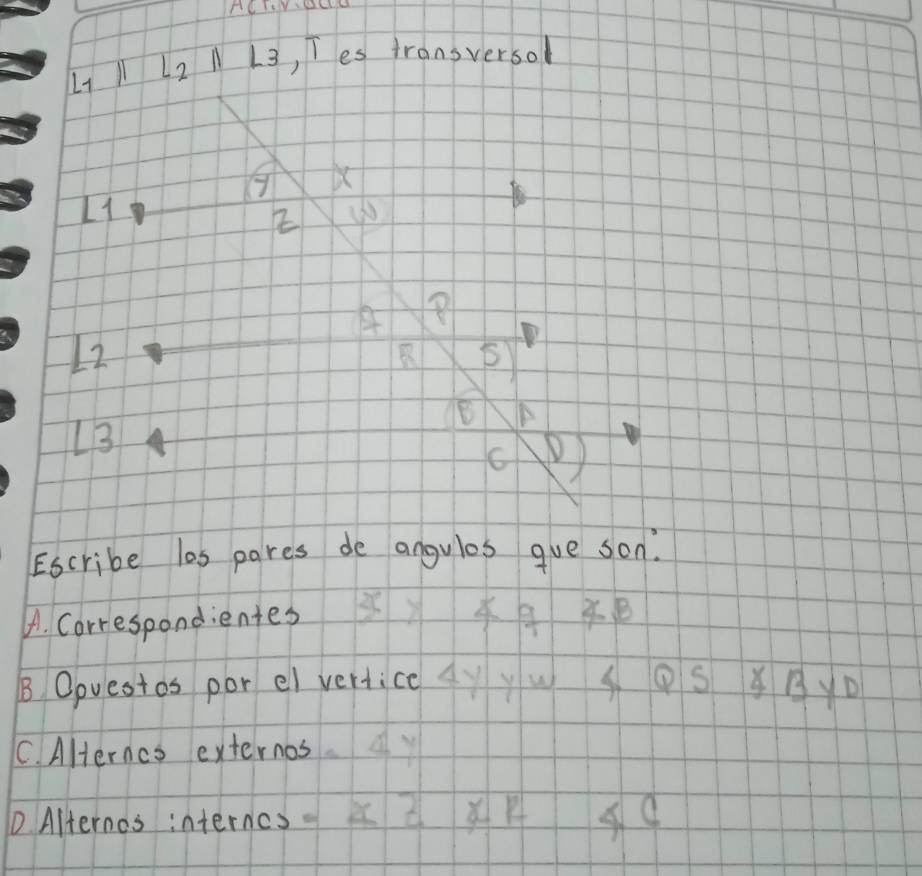 L1 || L2 || L3, T es transversal
Y X
L1
Z W
q P
L2
R S
B A
L3
C D
Escribe los pares de angulos que son:
A. Correspondientes ∡ Y ∡ q ∡ B
B Opuestos por el vertice ∡ Y y W ∡ Q S ∡ B y D
C. Alternos externos ∡ Y
D Alternos internos = ∡ Z ∡ R ∡ C